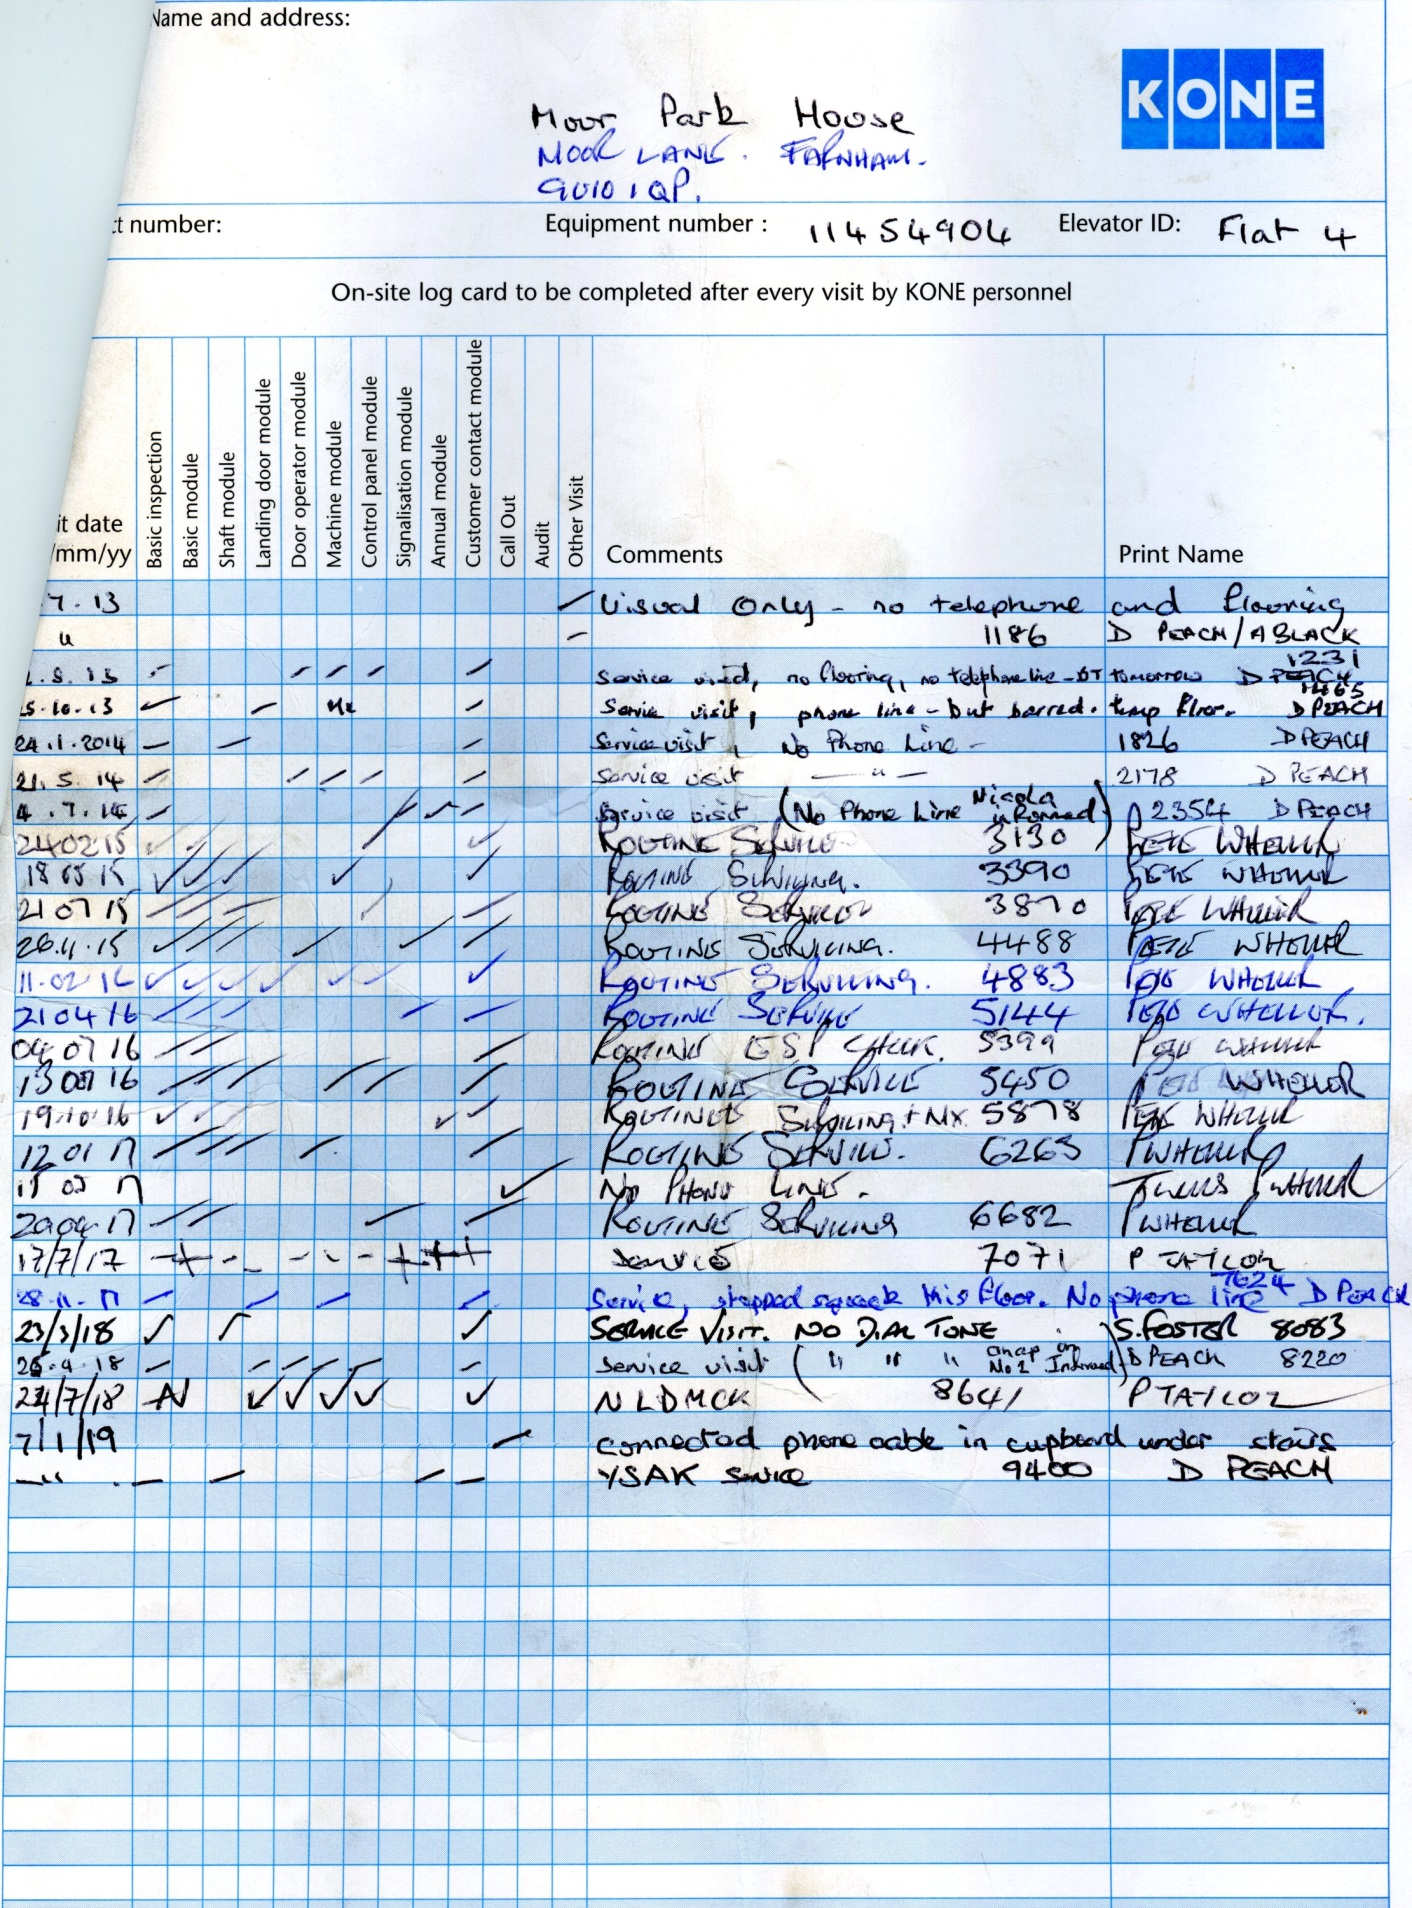 Name and address:
KONE
Moor Park House
MOOR LANE. FARNHAM.
GU10 1QP.
ct number:
Equipment number : 11454904
Elevator ID: Flat 4
On-site log card to be completed after every visit by KONE personnel
it date
/mm/yy
Basic inspection
Basic module
Shaft module
Landing door module
Door operator module
Machine module
Control panel module
Signalisation module
Annual module
Customer contact module
Call Out
Audit
Other Visit
Comments
Print Name
.7.13 Visual Only - no telephone and flooring
" 1186 D PEACH/A BLACK
.8.13 Service visit, no flooring, no telephone line - DT tomorrow D PEACH 1231
5.10.13 Service visit, phone line - but barred. temp floor. D PEACH 1465
24.1.2014 Service visit, No Phone Line - 1826 D PEACH
21.5.14 Service visit — " — 2178 D PEACH
4.7.14 Service visit (No Phone Line Nicola informed) 2354 D PEACH
24 02 15 ROUTINE SERVICE 3130 PETE WHELLER
18 05 15 ROUTINE SERVICING. 3390 PETE WHELLER
21 07 15 ROUTINE SERVICE 3870 PETE WHELLER
26.11.15 ROUTINE SERVICING. 4488 PETE WHELLER
11.02 16 ROUTINE SERVICING. 4883 PETE WHELLER
21 04 16 ROUTINE SERVICE 5144 PETE WHELLER.
04 07 16 ROUTINE CHECK. 5399 PETE WHELLER
13 16 ROUTINE SERVICE 5450 PETE WHELLER
19.10.16 ROUTINE SERVICING + 5878 PETE WHELLER
12 01 17 ROUTINE SERVICE. 6263 P WHELLER
17 NO PHONE LINE. P WHELLER
20 04 17 ROUTINE SERVICING 6682 P WHELLER
17/7/17 Service 7071 P TAYLOR
28.11.17 Service, stopped squeak this floor. No phone line 7624 D PEACH
23/3/18 SERVICE VISIT. NO DIAL TONE S.FOSTER 8083
.18 Service visit ( " " " chap on No 1 Informed) D PEACH 8220
24/7/18 N L D M C K 8641 P TAYLOR
7/1/19 connected phone cable in cupboard under stairs
—"— YSAK Service 9400 D PEACH